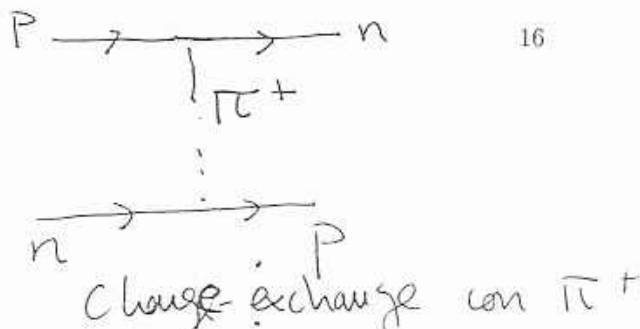 P n 16
π+
n P
Charge-exchange con π+